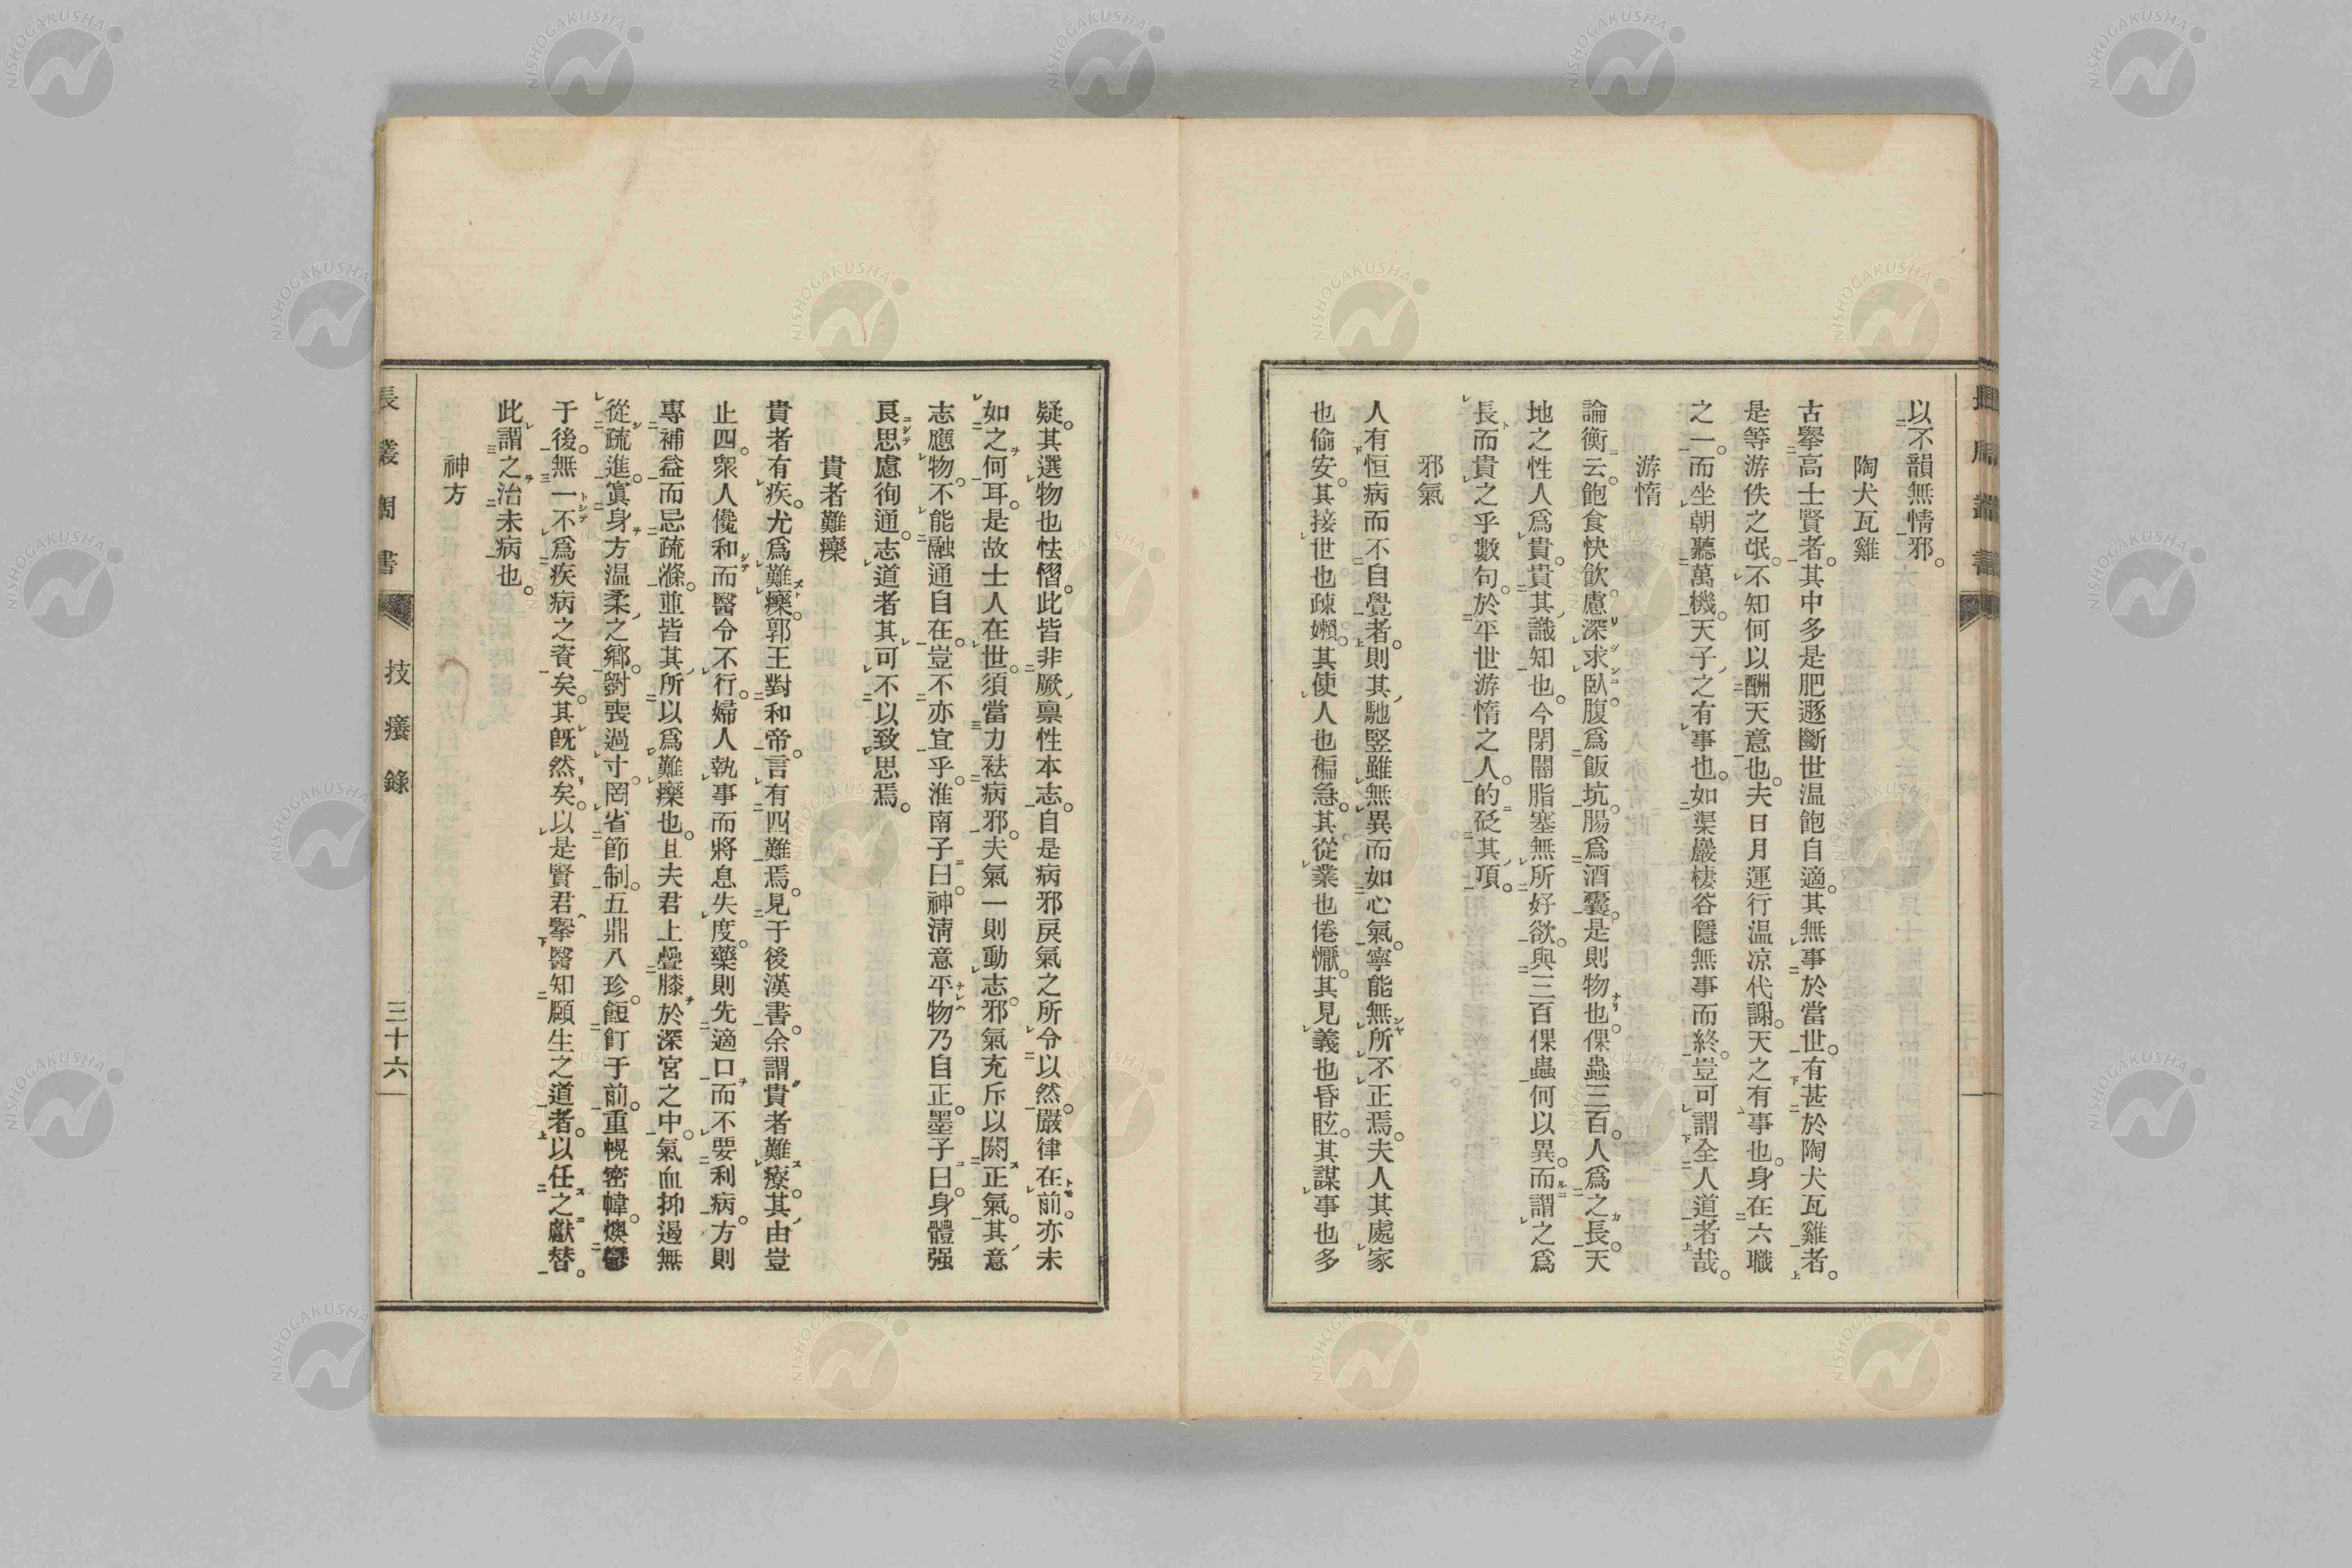 以不韻無情邪。
陶犬瓦雞
古擧高士賢者。其中多是肥遯斷世温飽自適。其無事於當世。有甚於陶犬瓦雞者。
是等游佚之氓。不知何以酬天意也。夫日月運行温凉代謝。天之有事也。身在六職
之一。而坐朝聽萬機。天子之有事也。如渠巖棲谷隱無事而終。豈可謂全人道者哉。
游惰
論衡云。飽食快飮。慮深求臥。腹爲飯坑。腸爲酒囊。是則物也。倮蟲三百。人爲之長。天
地之性人爲貴。貴其識知也。今閉闇脂塞無所好欲。與三百倮蟲何以異。而謂之爲
長而貴之乎數句。於平世游惰之人。的砭其項。
邪氣
人有恒病而不自覺者。則其馳竪雖無異而如心氣。寧能無所不正焉。夫人其處家
也偷安。其接世也疎嬾。其使人也褊急。其從業也倦懨。其見義也昏眩。其謀事也多
疑。其選物也怯慴。此皆非厥禀性本志。自是病邪戾氣之所令以然。嚴律在前。亦未
如之何耳。是故士人在世。須當力祛病邪。夫氣一則動志。邪氣充斥以閼正氣。其意
志應物。不能融通自在。豈不亦宜乎。淮南子曰。神淸意平物乃自正。墨子曰。身體强
良思慮徇通。志道者其可不以致思焉。
貴者難療
貴者有疾。尤爲難療。郭王對和帝。言有四難焉。見于後漢書。余謂貴者難療。其由豈
止四。衆人儳和而醫令不行。婦人執事而將息失度。藥則先適口而不要利病。方則
專補益而忌疏滌。並皆其所以爲難療也。且夫君上疊膝於深宮之中。氣血抑遏無
從疏進。寘身方温柔之鄉。斵喪過寸。罔省節制。五鼎八珍。餖飣于前。重幌密幃。燠鬱
于後。無一不爲疾病之資矣。其旣然矣。以是賢君擧醫知願生之道者。以任之獻替。
此謂之治未病也。
神方
長叢
書
技癢錄
三十六